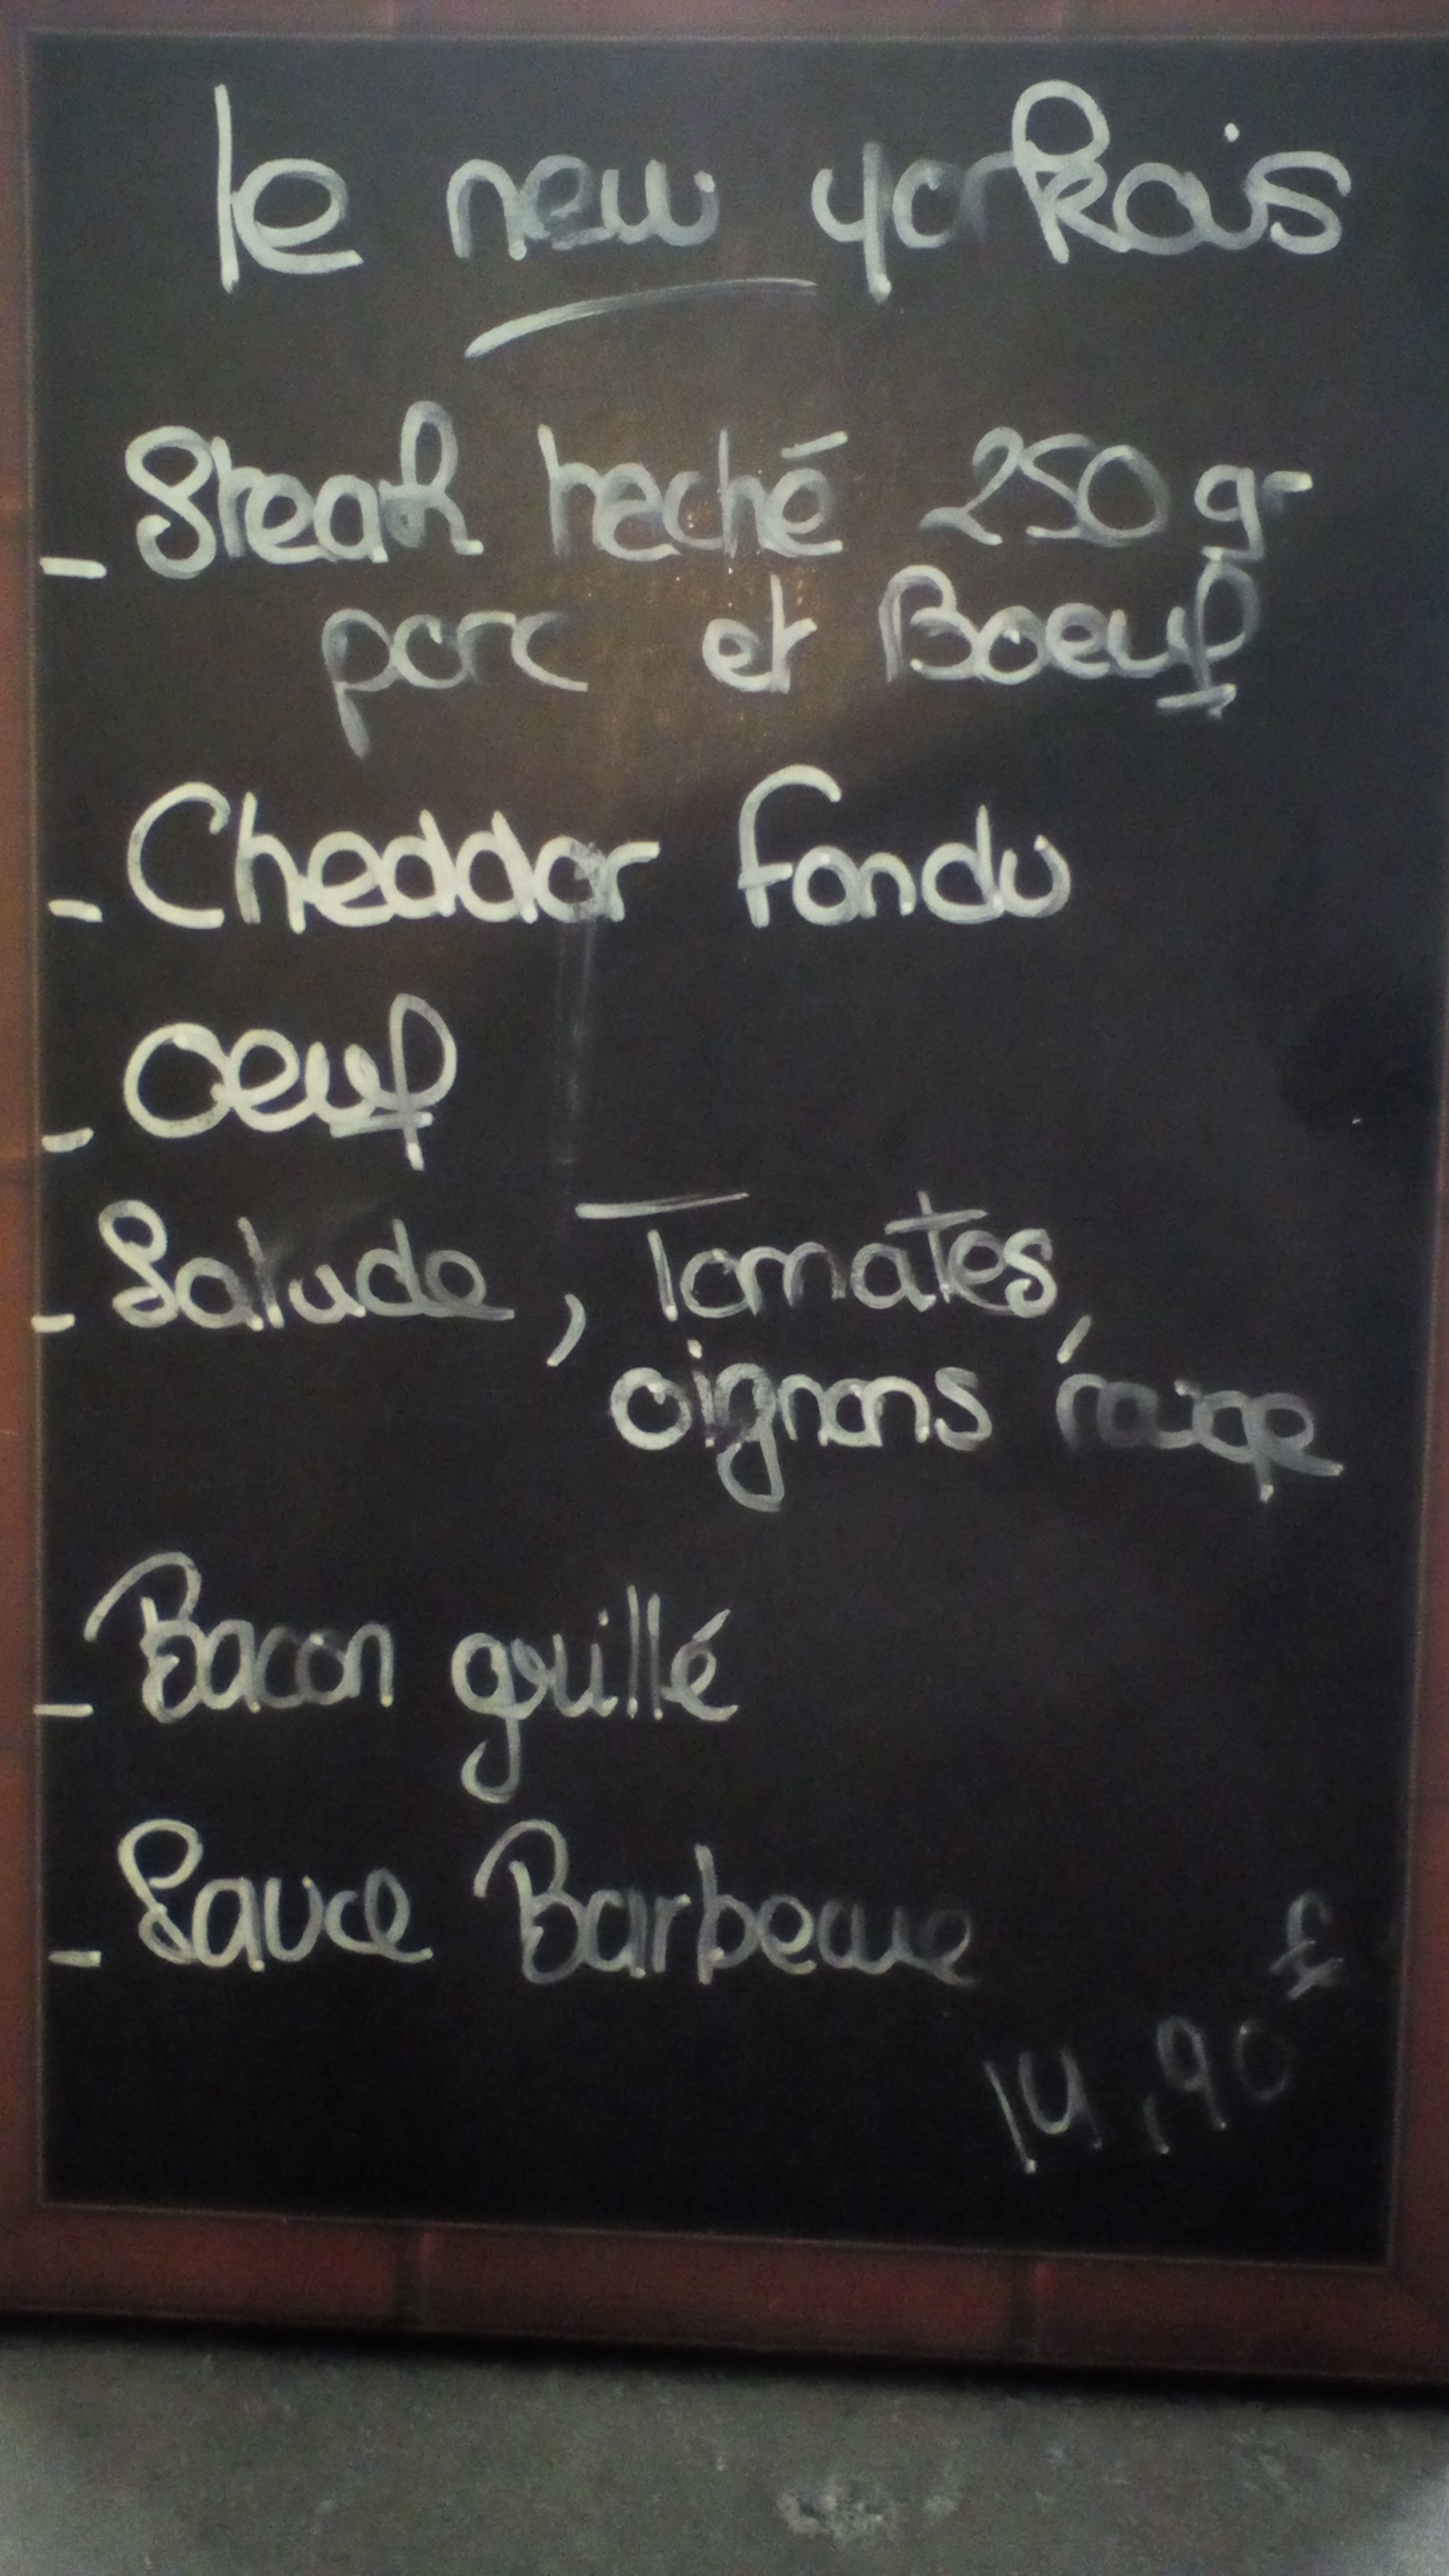 le new yorkais
- Steak haché 250 gr
porc et Boeuf
- Cheddar fondu
- Oeuf
- Salade, Tomates,
oignons rouge
- Bacon grillé
- Sauce Barbecue
14,90 €